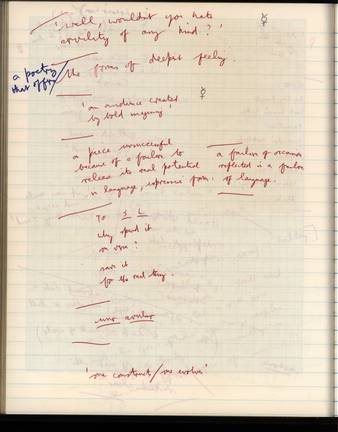 'well, wouldn't you hate
servility of any kind?'
a poetry
that offers
the forms of deepest feeling
'an audience created
by bold imaging'
a piece unsuccessful
because of a failure to
release its real potential
in language, expressive form.
a failure of
reflected in a failure
of language.
TO S L
why spend it
on
save it
for the real thing.
'one constructs / one evolves'